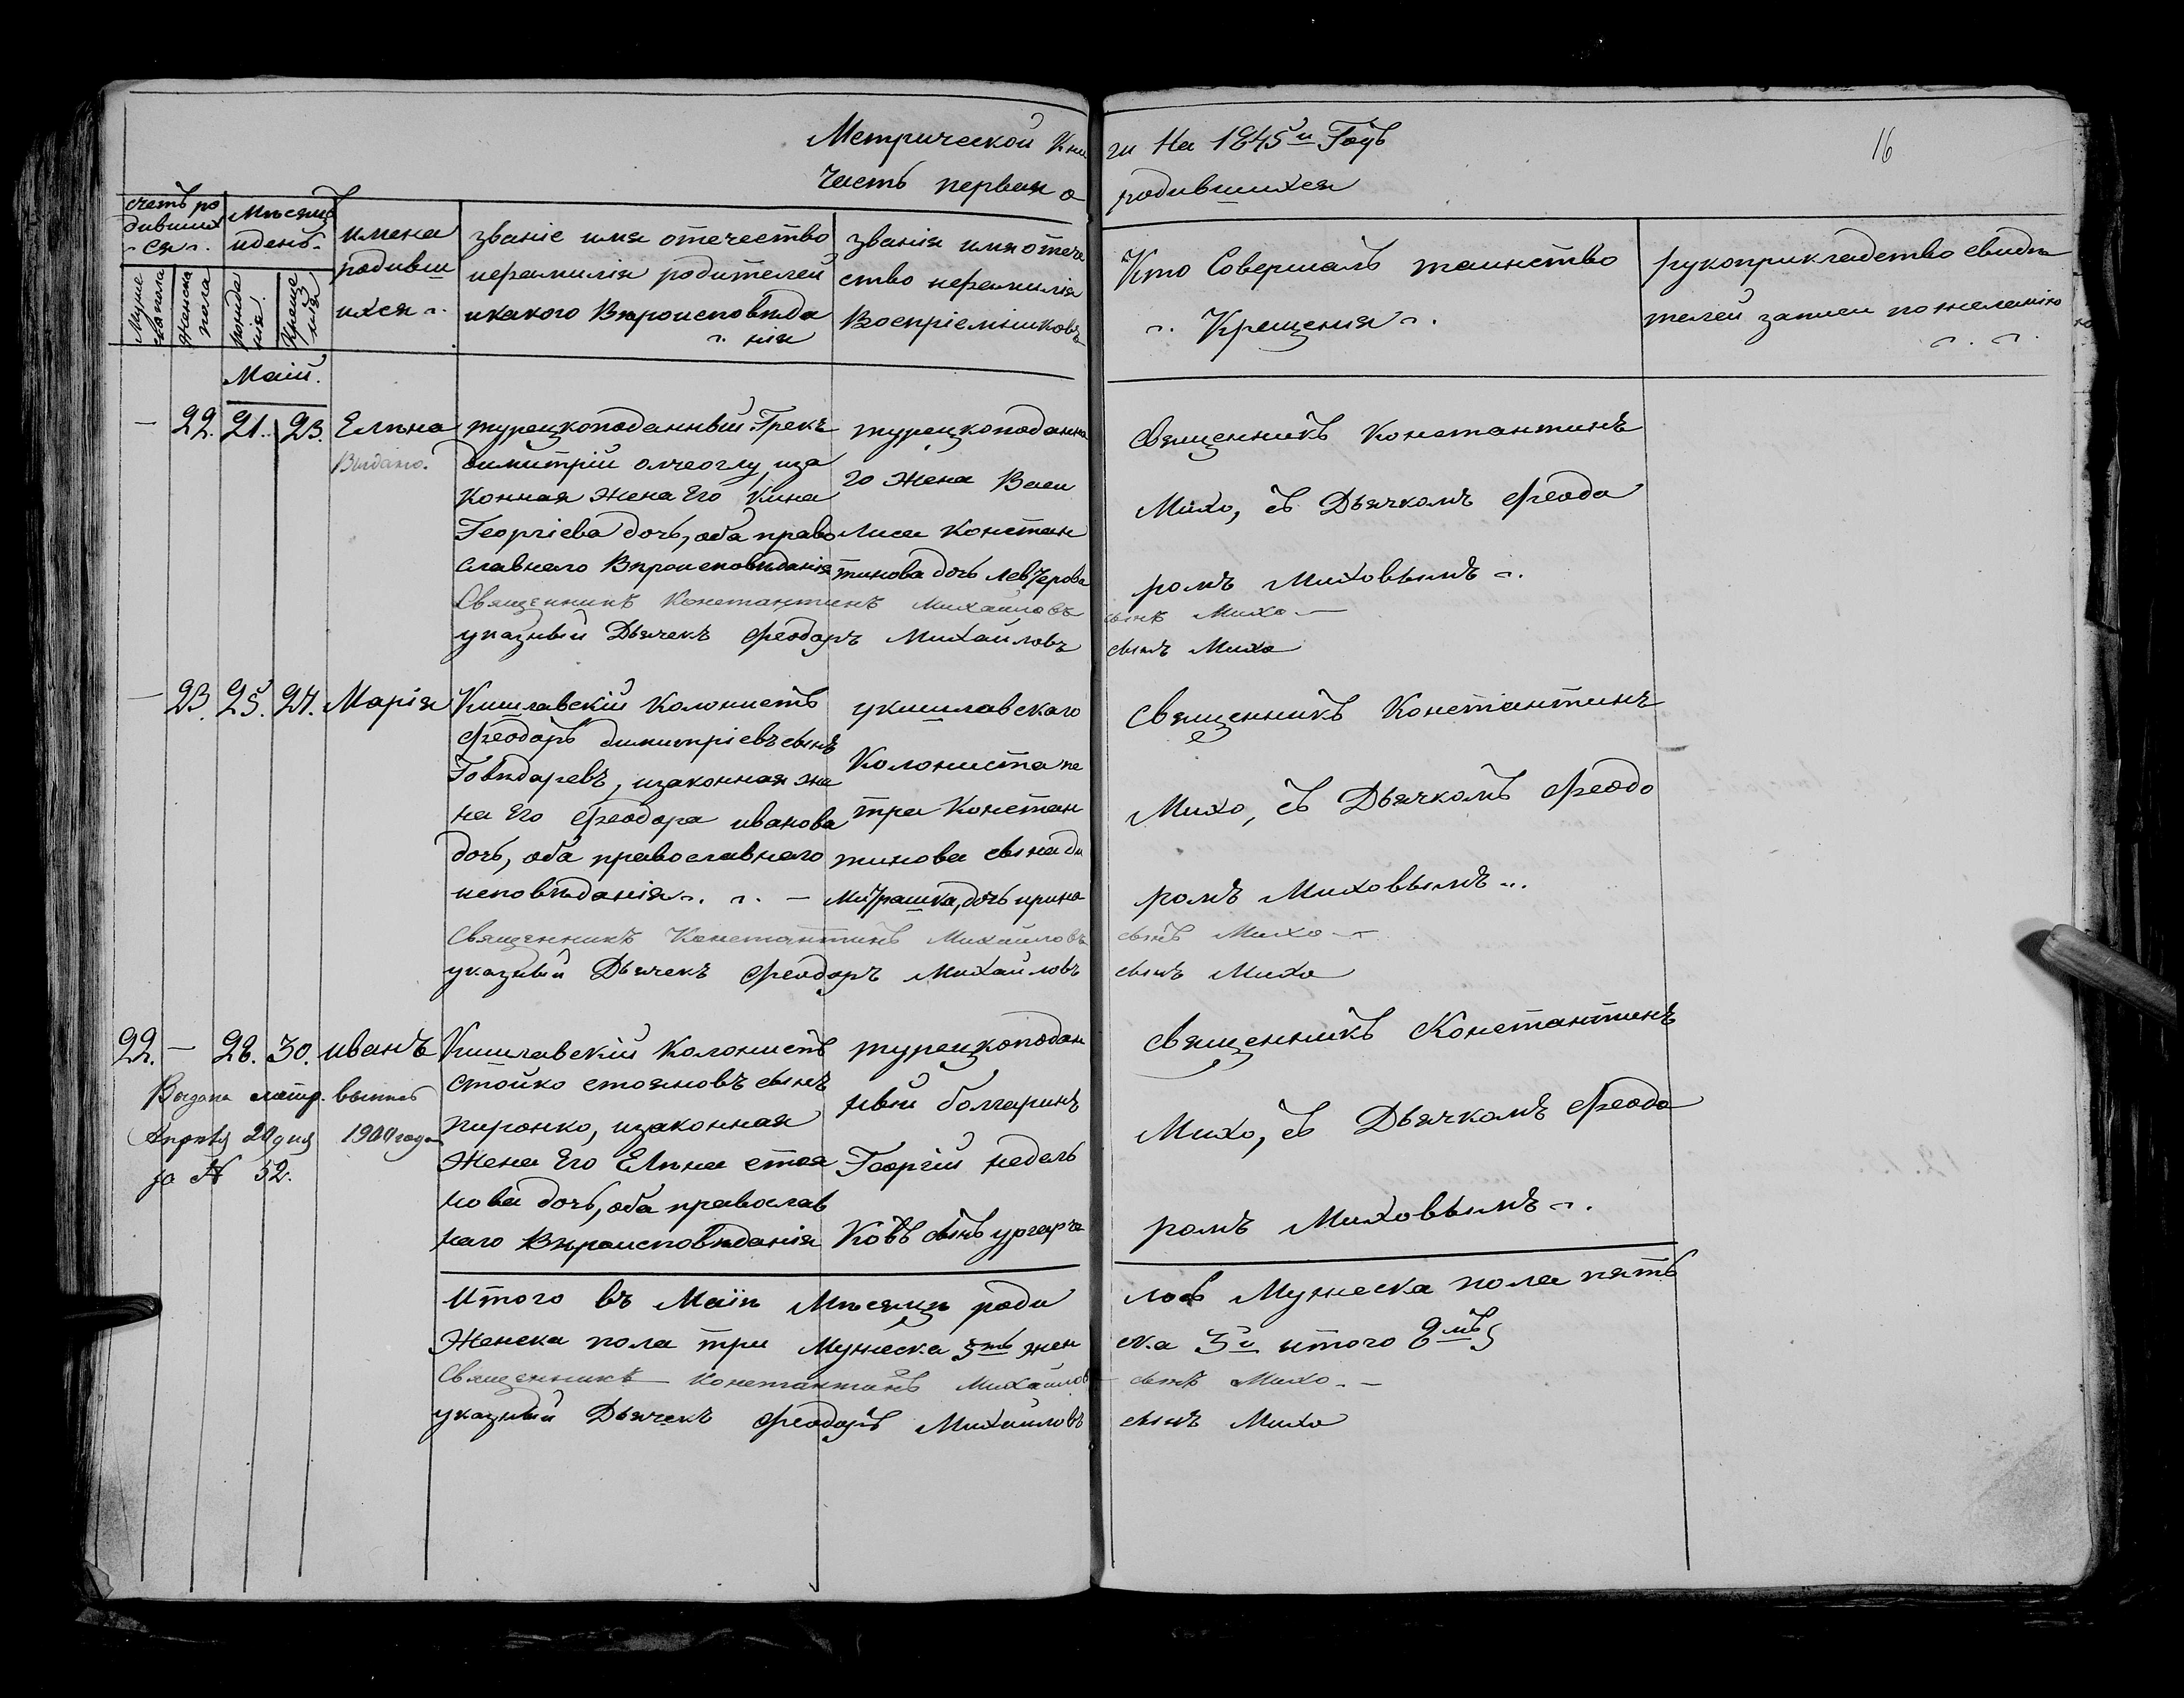 Метрической Кни
ги На 1845й Годъ
16
Часть первая о
родившихся
счетъ ро
дивших
ся
Мѣсяцъ
и день
имена
родивш
ихся
званіе имя отечество
и фамилія родителей
и какого Вѣроисповѣда
нія
званія имя отече
ство и фамилія
Воспріемниковъ
Кто Совершалъ таинство
Крещенія
рукоприкладство свидѣ
телей записи по желанію
Муже
ска пола
Женска
пола
рожде
нія
Креще
нія
Маій.
— 22. 21. 23. Елѣна
Выдано.
турецкоподанный Грекъ
Димитрій олчеоглу, иза
конная жена Его Кина
Георгіева дочь, оба право
славнаго Вѣроисповѣданія
турецкоподанна
го жена Васи
лиса Констан
тинова дочь Левтерова
Священникъ Константинъ
Михо, съ Дьячкомъ Феодо
ромъ Миховымъ
Священникъ Константинъ Михайловъ сынъ Михо
указный Дьячекъ Феодоръ Михайловъ сынъ Михо
— 23. 25. 27. Марія
Кишлавскій Колонистъ
Феодоръ димитріевъ сынъ
Говѣдаревъ, изаконная же
на Его Феодора иванова
дочь, оба православнаго
исповѣданія
укишлавскаго
Колониста пе
тра Констан
тинова сына ди
митрашка, дочь ирина
Священникъ Константинъ
Михо, съ Дьячкомъ Феодо
ромъ Миховымъ
Священникъ Константинъ Михайловъ сынъ Михо
указный Дьячекъ Феодоръ Михайловъ сынъ Михо
22. — 28. 30. иванъ
Выдана метр. выпись
Апрѣля 20 дня 1900 года
за № 52.
Кишлавскій Колонистъ
стойко стояновъ сынъ
пиронко, изаконная
Жена Его Елѣна стоя
нова дочь, оба православ
наго Вѣроисповѣданія
турецкоподан
ный болгаринъ
Георгій недель
ковъ сынъ
Священникъ Константинъ
Михо, съ Дьячкомъ Феодо
ромъ Миховымъ
Итого въ Маіѣ Мѣсяцѣ роди
лось Мужеска пола пять
Женска пола три Мужеска 5ть жен
ска 3и итого 8мь
Священникъ Константинъ Михайлов сынъ Михо
указный Дьячекъ Феодоръ Михайловъ сынъ Михо